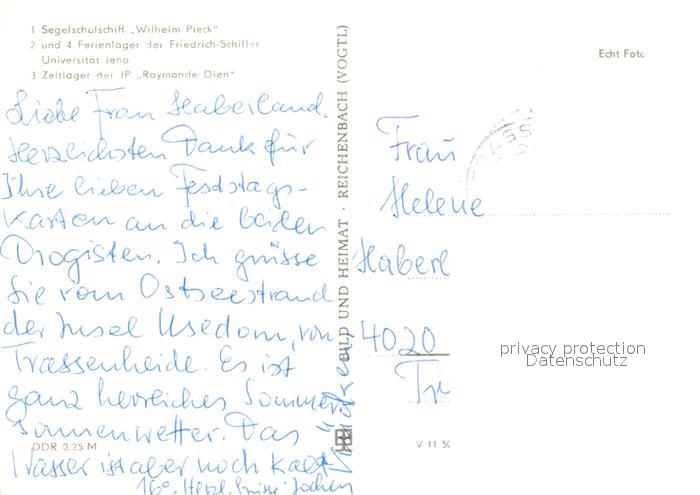 1 Segelschulschiff „Wilhelm Pieck"
2 und 4 Ferienlager der Friedrich-Schiller
Universität Jena
3 Zeltlager der JP „Raymonde Dien"
Liebe Frau Haberland.
Herzlichsten Dank für
Ihre lieben Festtags-
karten an die beiden
Drogisten. Ich grüsse
Sie vom Ostseestrand
der Insel Usedom, von
Trassenheide. Es ist
ganz herrliches Sommer
Sonnenwetter. Das
Wasser ist aber noch kalt
16°. Herzl. Grüsse: Jochen
DDR 0,25 M
BILD UND HEIMAT · REICHENBACH (VOGTL)
Echt Foto
Frau
Helene
Haberl
4020
Tr
V 11 50
privacy protection
Datenschutz